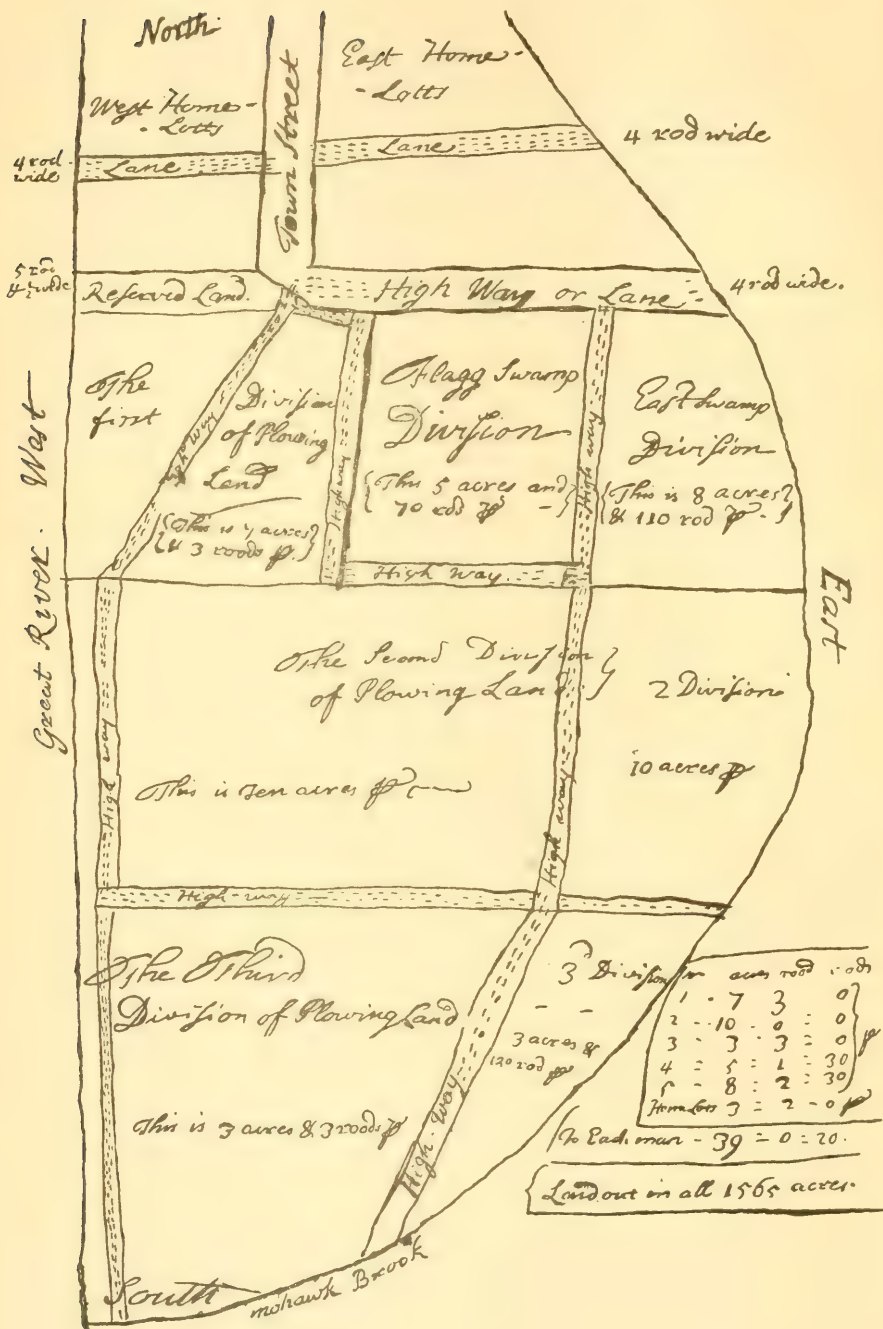 North
West Home-
-Lotts
Town Street
East Home-
-Lotts
4 rod
wide
Lane
Lane
4 rod wide
5 rod
wide
Reserved Land.
High Way or Lane
4 rod wide.
Great River. West
East
The
first
Division
of Plowing
Land
This is 7 acres
& 3 roods p.
High Way
High way
Flagg Swamp
Division
This 5 acres and
70 rod p
High way
East Swamp
Division
This is 8 acres
& 110 rod p
High Way.
The Second Division
of Plowing Land
This is Ten acres p
2 Division
10 acres p
High way
High way
High way
High-way
The Third
Division of Plowing Land
This is 3 acres & 3 roods p
3d Division
3 acres &
120 rod p
High. Way
acres rood rods
1 - 7 3 0
2 - 10 - 0 = 0
3 - 3 - 3 = 0
4 = 5 = 1 = 30
5 - 8 = 2 = 30
p
Home Lots 3 = 2 - 0 p
To Each man - 39 = 0 = 20.
Land out in all 1565 acres.
South
mohawk Brook